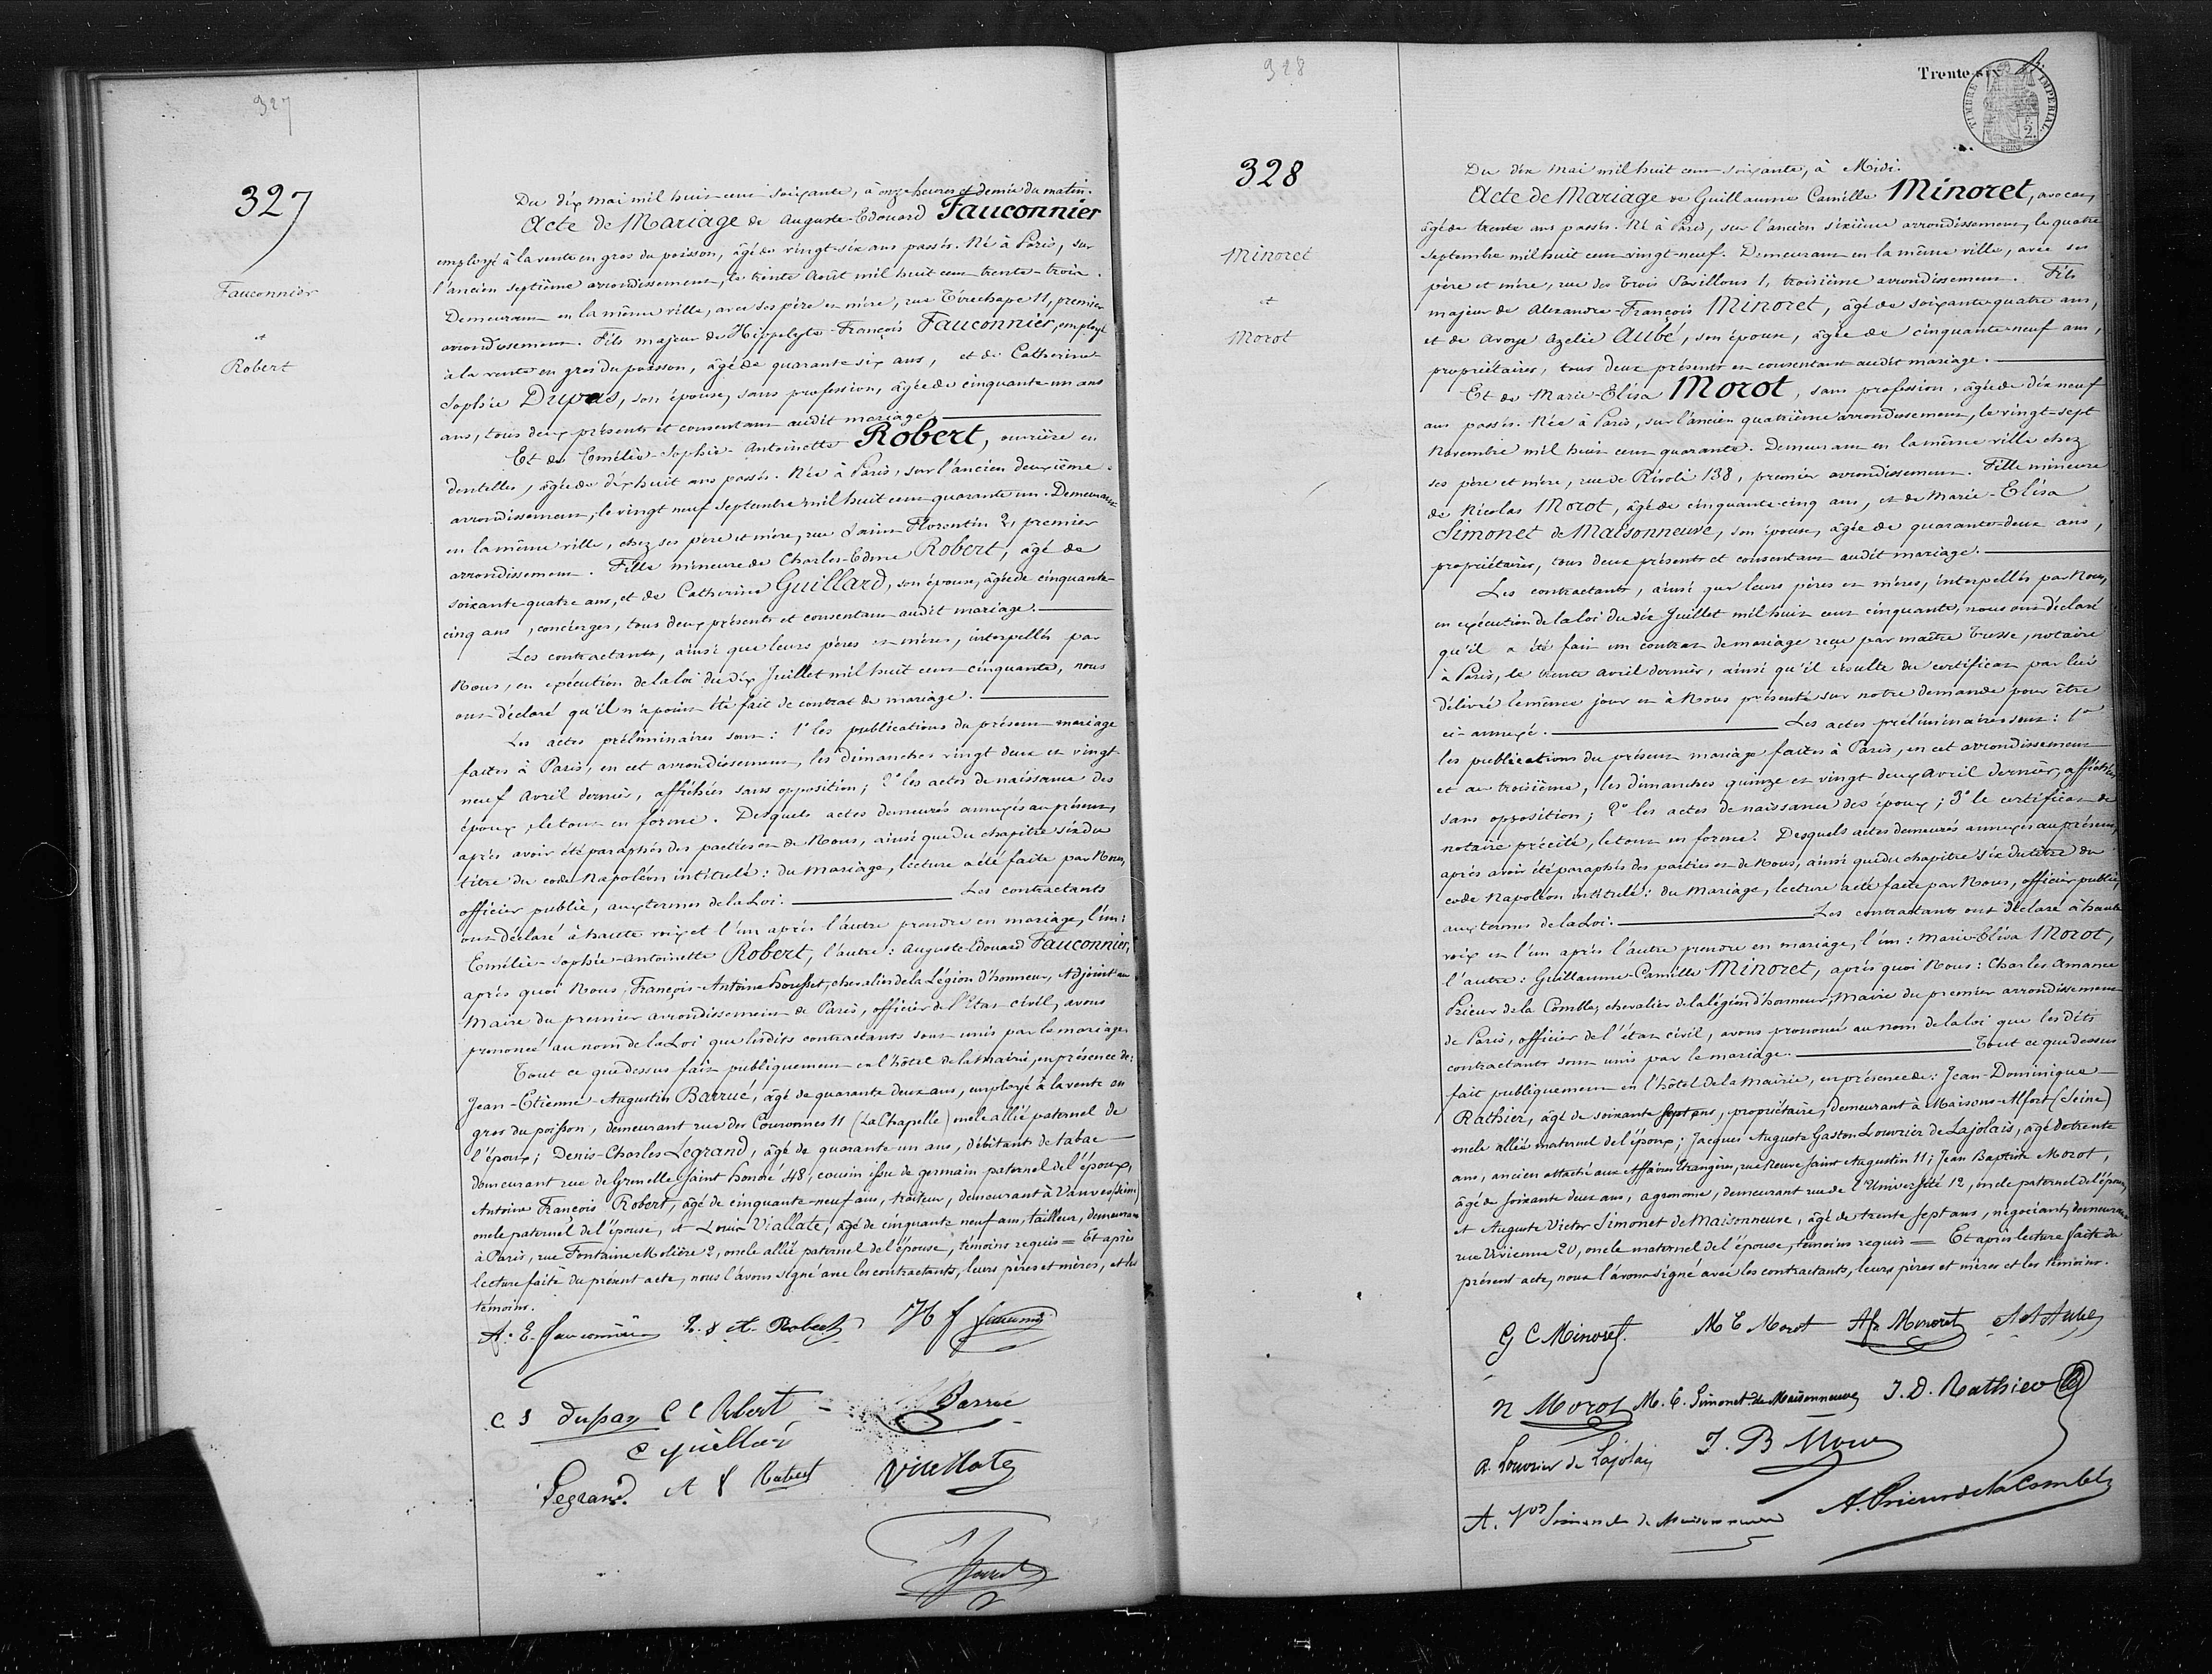 327
327
Fauconnier
et
Robert
Du dix mai mil huit cent soixante, à onze heures et demie du matin.
Acte de Mariage de Auguste-Edouard Fauconnier
employé à la vente en gros du poisson, âgé de vingt-six ans passés. Né à Paris, sur
l'ancien septième arrondissement, le trente Août mil huit cent trente-trois.
Demeurant en la même ville, avec ses père et mère, rue Tirechape 11, premier
arrondissement. Fils majeur de Hippolyte-François Fauconnier, employé
à la vente en gros du poisson, âgé de quarante six ans, et de Catherine
Sophie Dupas, son épouse, sans profession, âgée de cinquante un ans
ans, tous deux présents et consentant audit mariage.
Et de Emélie-Sophie-Antoinette Robert, ouvrière en
dentelles, âgée de dix huit ans passés. Née à Paris, sur l'ancien deuxième
arrondissement, le vingt neuf Septembre mil huit cent quarante un. Demeurant
en la même ville, chez ses père et mère, rue Saint Florentin 2, premier
arrondissement. Fille mineure de Charles-Edme Robert, âgé de
soixante quatre ans, et de Catherine Guillard, son épouse, âgée de cinquante-
cinq ans, concierges, tous deux présents et consentant audit mariage.
Les contractants, ainsi que leurs pères et mères, interpellés par
Nous, en exécution de la loi du dix Juillet mil huit cent cinquante, nous
ont déclaré qu'il n'a point été fait de contrat de mariage.
Les actes préliminaires sont : 1° les publications du présent mariage
faites à Paris, en cet arrondissement, les dimanches vingt deux et vingt
neuf Avril dernier, affichées sans opposition; 2° les actes de naissance des
époux, le tout en forme. Desquels actes demeurés annexés au présent,
après avoir été paraphés des parties et de Nous, ainsi que du chapitre six du
titre du code Napoléon intitulé : du Mariage, lecture a été faite par Nous,
officier public, aux termes de la Loi. Les contractants
ont déclaré à haute voix et l'un après l'autre prendre en mariage, l'un :
Emélie-Sophie-Antoinette Robert, l'autre : Auguste-Edouard Fauconnier,
après quoi Nous, François-Antoine, chevalier de la Légion d'honneur, Adjoint au
Maire du premier arrondissement de Paris, officier de l'Etat civil, avons
prononcé au nom de la Loi que lesdits contractants sont unis par le mariage.
Tout ce que dessus fait publiquement en l'hôtel de la Mairie, en présence de :
Jean-Etienne-Augustin Barrué, âgé de quarante deux ans, employé à la vente en
gros du poisson, demeurant rue des Couronnes 11 (La Chapelle) oncle allié paternel de
l'époux; Denis-Charles Legrand, âgé de quarante un ans, débitant de tabac
demeurant rue de Grenelle Saint honoré 48, cousin issu de germain paternel de l'époux,
Antoine François Robert, âgé de cinquante-neuf ans, traiteur, demeurant à Vanves (Seine)
oncle paternel de l'épouse, et Louis Viallate, âgé de cinquante neuf ans, tailleur, demeurant
à Paris, rue Fontaine Molière 2, oncle allié paternel de l'épouse, témoins requis = Et après
lecture faite du présent acte, nous l'avons signé avec les contractants, leurs pères et mères, et les
témoins.
A. E. Fauconnier E. S. A. Robert H f fauconnier
C S dupas C E Robert Barrué
C guillard
Legrand A F Robert Viallate
328
328
Minoret
et
Morot
Trente-six
TIMBRE IMPERIAL
2
SEINE
Du dix Mai mil huit cent soixante, à Midi.
Acte de Mariage de Guillaume Camille Minoret, avocat,
âgé de trente ans passés. Né à Paris, sur l'ancien sixième arrondissement, le quatre
Septembre mil huit cent vingt-neuf. Demeurant en la même ville, avec ses
père et mère, rue des Trois Pavillons 1, troisième arrondissement. Fils
majeur de Alexandre-François Minoret, âgé de soixante quatre ans,
et de Avoye Azelie Aubé, son épouse, âgée de cinquante-neuf ans,
propriétaires, tous deux présents et consentant audit mariage.
Et de Marie-Elisa Morot, sans profession, âgée de dix neuf
ans passés. Née à Paris, sur l'ancien quatrième arrondissement, le vingt-sept
Novembre mil huit cent quarante. Demeurant en la même ville chez
ses père et mère, rue de Rivoli 138, premier arrondissement. Fille mineure
de Nicolas Morot, âgé de cinquante cinq ans, et de Marie-Elisa
Simonet de Maisonneuve, son épouse, âgée de quarante-deux ans,
propriétaires, tous deux présents et consentant audit mariage.
Les contractants, ainsi que leurs pères et mères, interpellés par Nous,
en exécution de la loi du dix Juillet mil huit cent cinquante, nous ont déclaré
qu'il a été fait un contrat de mariage reçu par maître Tresse, notaire
à Paris, le trente avril dernier, ainsi qu'il résulte du certificat par lui
délivré le même jour et à Nous présenté sur notre demande pour être
ci-annexé. Les actes préliminaires sont : 1°
les publications du présent mariage faites à Paris, en cet arrondissement
et au troisième, les dimanches quinze et vingt deux Avril dernier, affichées
sans opposition; 2° les actes de naissance des époux; 3° le certificat de
notaire précité, le tout en forme. Desquels actes demeurés annexés au présent,
après avoir été paraphés des parties et de Nous, ainsi que du chapitre six du titre du
code Napoléon intitulé : du Mariage, lecture a été faite par Nous, officier public,
aux termes de la Loi. Les contractants ont déclaré à haute
voix et l'un après l'autre prendre en mariage, l'un : Marie-Elisa Morot,
l'autre : Guillaume-Camille Minoret, après quoi Nous : Charles Amance
Prieur de la Comble, chevalier de la légion d'honneur, Maire du premier arrondissement
de Paris, officier de l'état civil, avons prononcé au nom de la loi que les dits
contractants sont unis par le mariage. Tout ce que dessus
fait publiquement en l'hôtel de la Mairie, en présence de : Jean-Dominique
Rathier, âgé de soixante sept ans, propriétaire, demeurant à Maisons-Alfort (Seine)
oncle allié maternel de l'époux; Jacques Auguste Gaston Louvrier de Lajolais, âgé de trente
ans, ancien attaché aux Affaires Etrangères, rue Neuve Saint Augustin 11; Jean Baptiste Morot,
âgé de soixante deux ans, agronome, demeurant rue de l'Université 12, oncle paternel de l'épouse,
et Auguste Victor Simonet de Maisonneuve, âgé de trente sept ans, négociant, demeurant
rue Vivienne 20, oncle maternel de l'épouse, témoins requis = Et après lecture faite du
présent acte, nous l'avons signé avec les contractants, leurs pères et mères et les témoins.
G C Minoret. M E Morot Af. Minoret Aubé
N Morot M. E. Simonet de Maisonneuve J. D. Rathier
A. Louvrier de Lajolais J. B Morot
A. Vor Simonet de Maisonneuve A. Prieur de la Comble